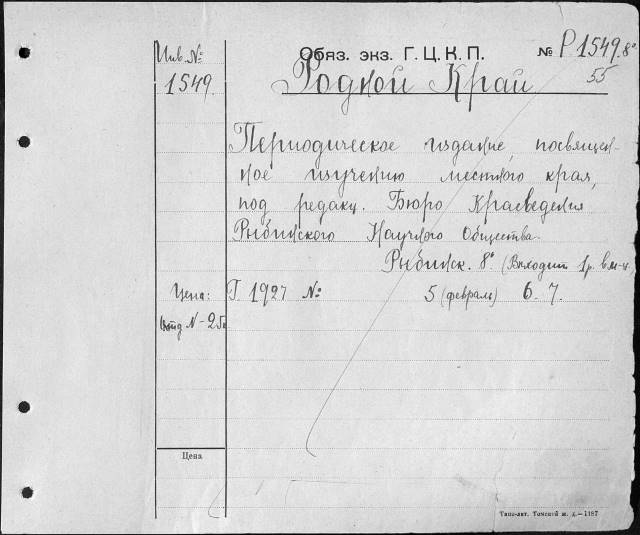 Инв. №
1549.
Обяз. экз. Г. Ц. К. П. № Р1549.8°
55
Родной Край
Периодическое издание, посвящен-
ное изучению местного края,
под редакц. Бюро Краеведения
Рыбинского Научного Общества.
Рыбинск. 8° (Выходит 1 р. в м-ц
Цена: Г. 1927 № 5 (февраль) 6. 7.
N-25к
Цена
Типо-лит. Томской ж. д.—1187